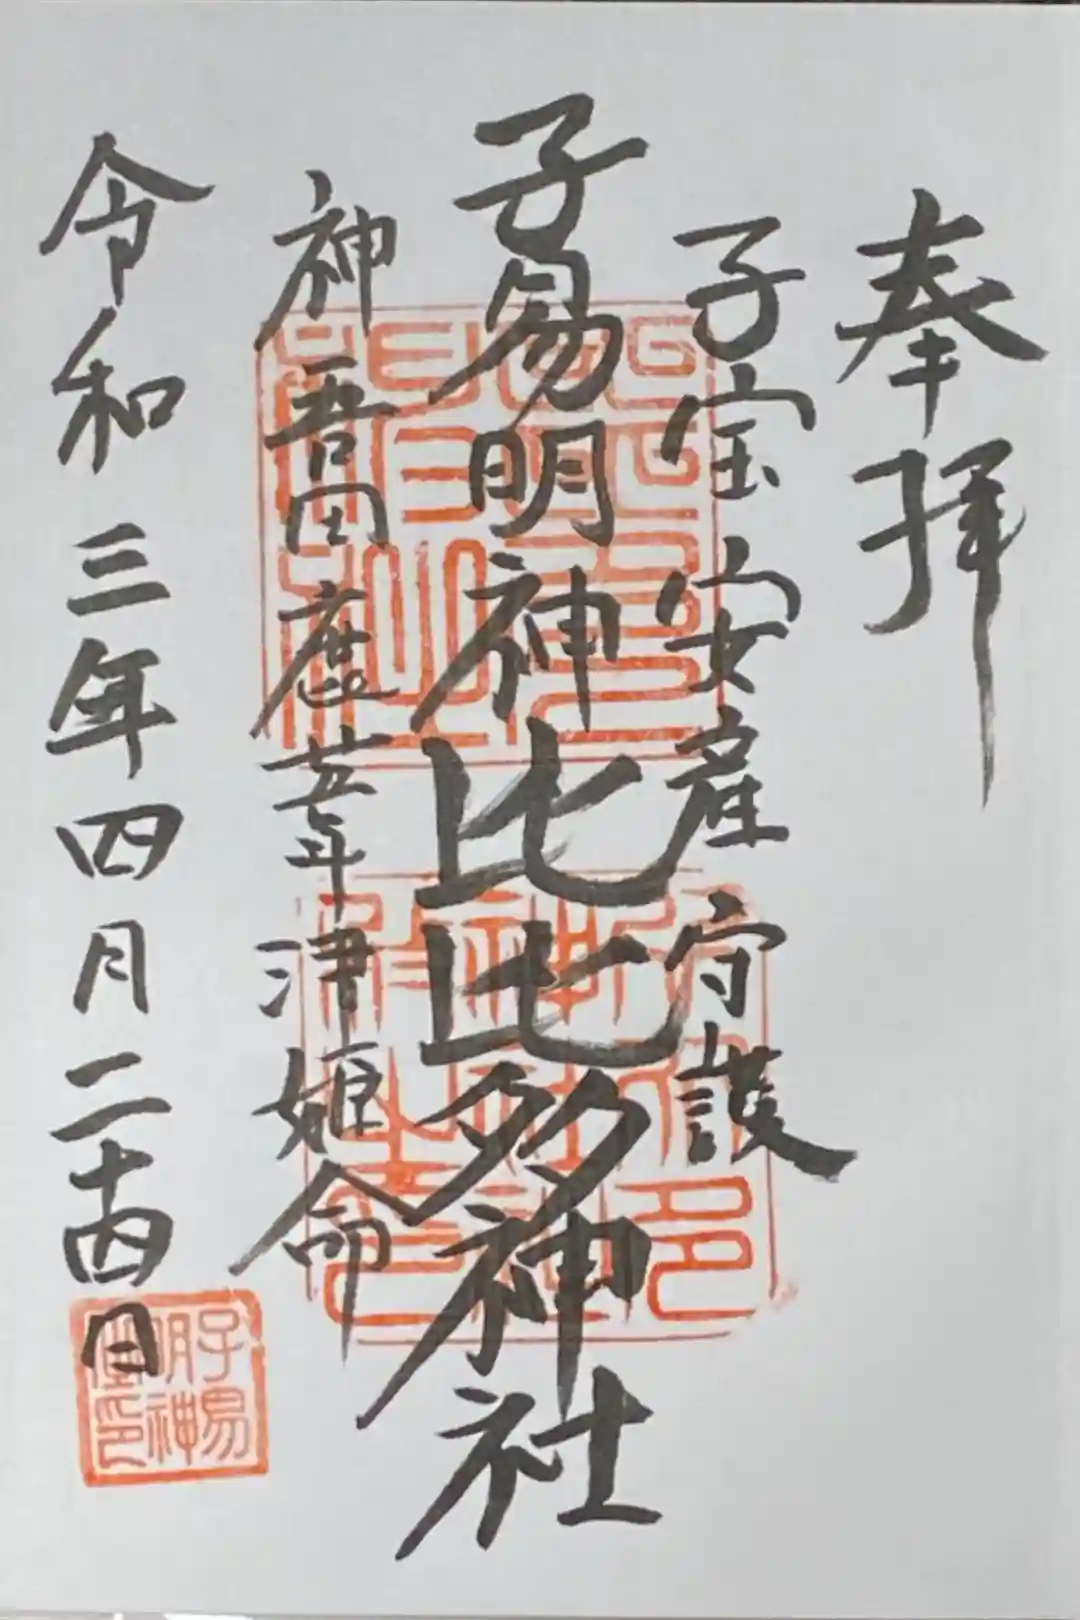 奉拝
子宝安産守護
子易明神比比多神社
神吾田鹿葦津姫命
令和三年四月二十四日
子易明神